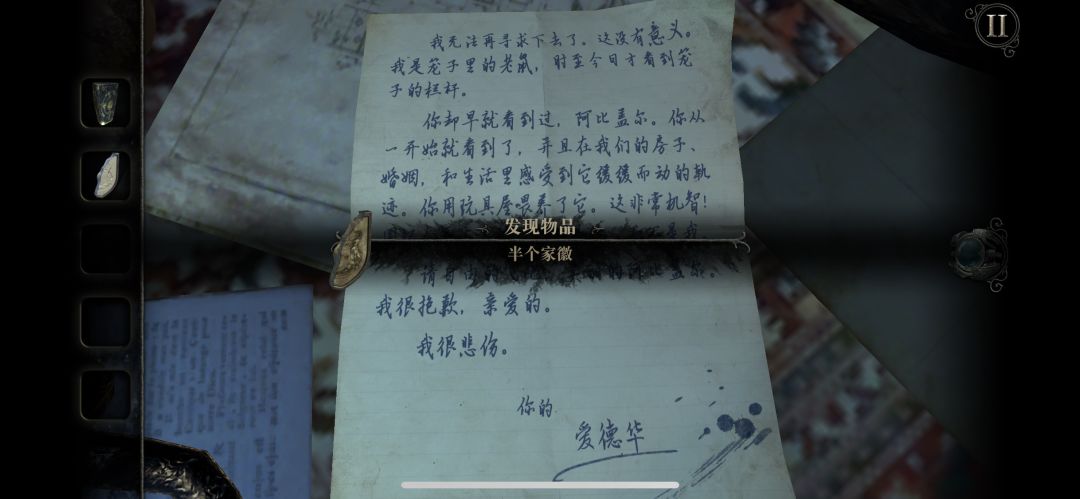 我无法再寻求下去了。这没有意头。
我是笼子里的老鼠，时至今日才看到笼
子的栏杆。
你却早就看到过，阿比盖尔。你从
一开始就看到了，并且在我们的房子、
婚姻，和生活里感受到它缓缓而动的轨
迹。你用玩具屋喂养了它。这非常机智！
发现物品
半个家徽
请自由的
阿比盖尔。
我很抱歉，亲爱的。
我很悲伤。
你的
爱德华